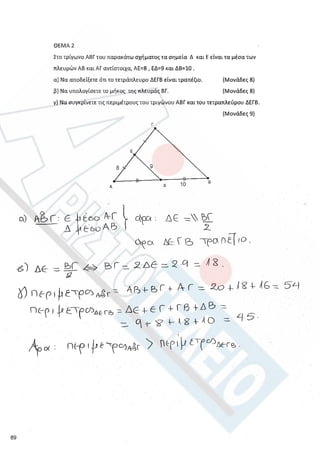 ΘΕΜΑ 2
Στο τρίγωνο ΑΒΓ του παρακάτω σχήματος τα σημεία Δ και Ε είναι τα μέσα των
πλευρών ΑΒ και ΑΓ αντίστοιχα, ΑΕ=8 , ΕΔ=9 και ΔΒ=10 .
α) Να αποδείξετε ότι το τετράπλευρο ΔΕΓΒ είναι τραπέζιο. (Μονάδες 8)
β) Να υπολογίσετε το μήκος της πλευράς ΒΓ. (Μονάδες 8)
γ) Να συγκρίνετε τις περιμέτρους του τριγώνου ΑΒΓ και του τετραπλεύρου ΔΕΓΒ.
(Μονάδες 9)
Γ
Ε
8 9
Α Δ 10 Β
α) ΑΒΓ: Ε μέσο ΑΓ } άρα: ΔΕ =\\ ΒΓ/2
Δ μέσο ΑΒ
άρα ΔΕΓΒ τραπέζιο.
β) ΔΕ = ΒΓ/2 <=> ΒΓ = 2ΔΕ = 2.9 = 18.
γ) Περίμετρος ΑΒΓ = ΑΒ + ΒΓ + ΑΓ = 20 + 18 + 16 = 54
Περίμετρος ΔΕΓΒ = ΔΕ + ΕΓ + ΓΒ + ΔΒ =
= 9 + 8 + 18 + 10 = 45.
Άρα: Περίμετρος ΑΒΓ > Περίμετρος ΔΕΓΒ.
ΑΡΙΣΤΟΤΕΛΕΙΟ
69